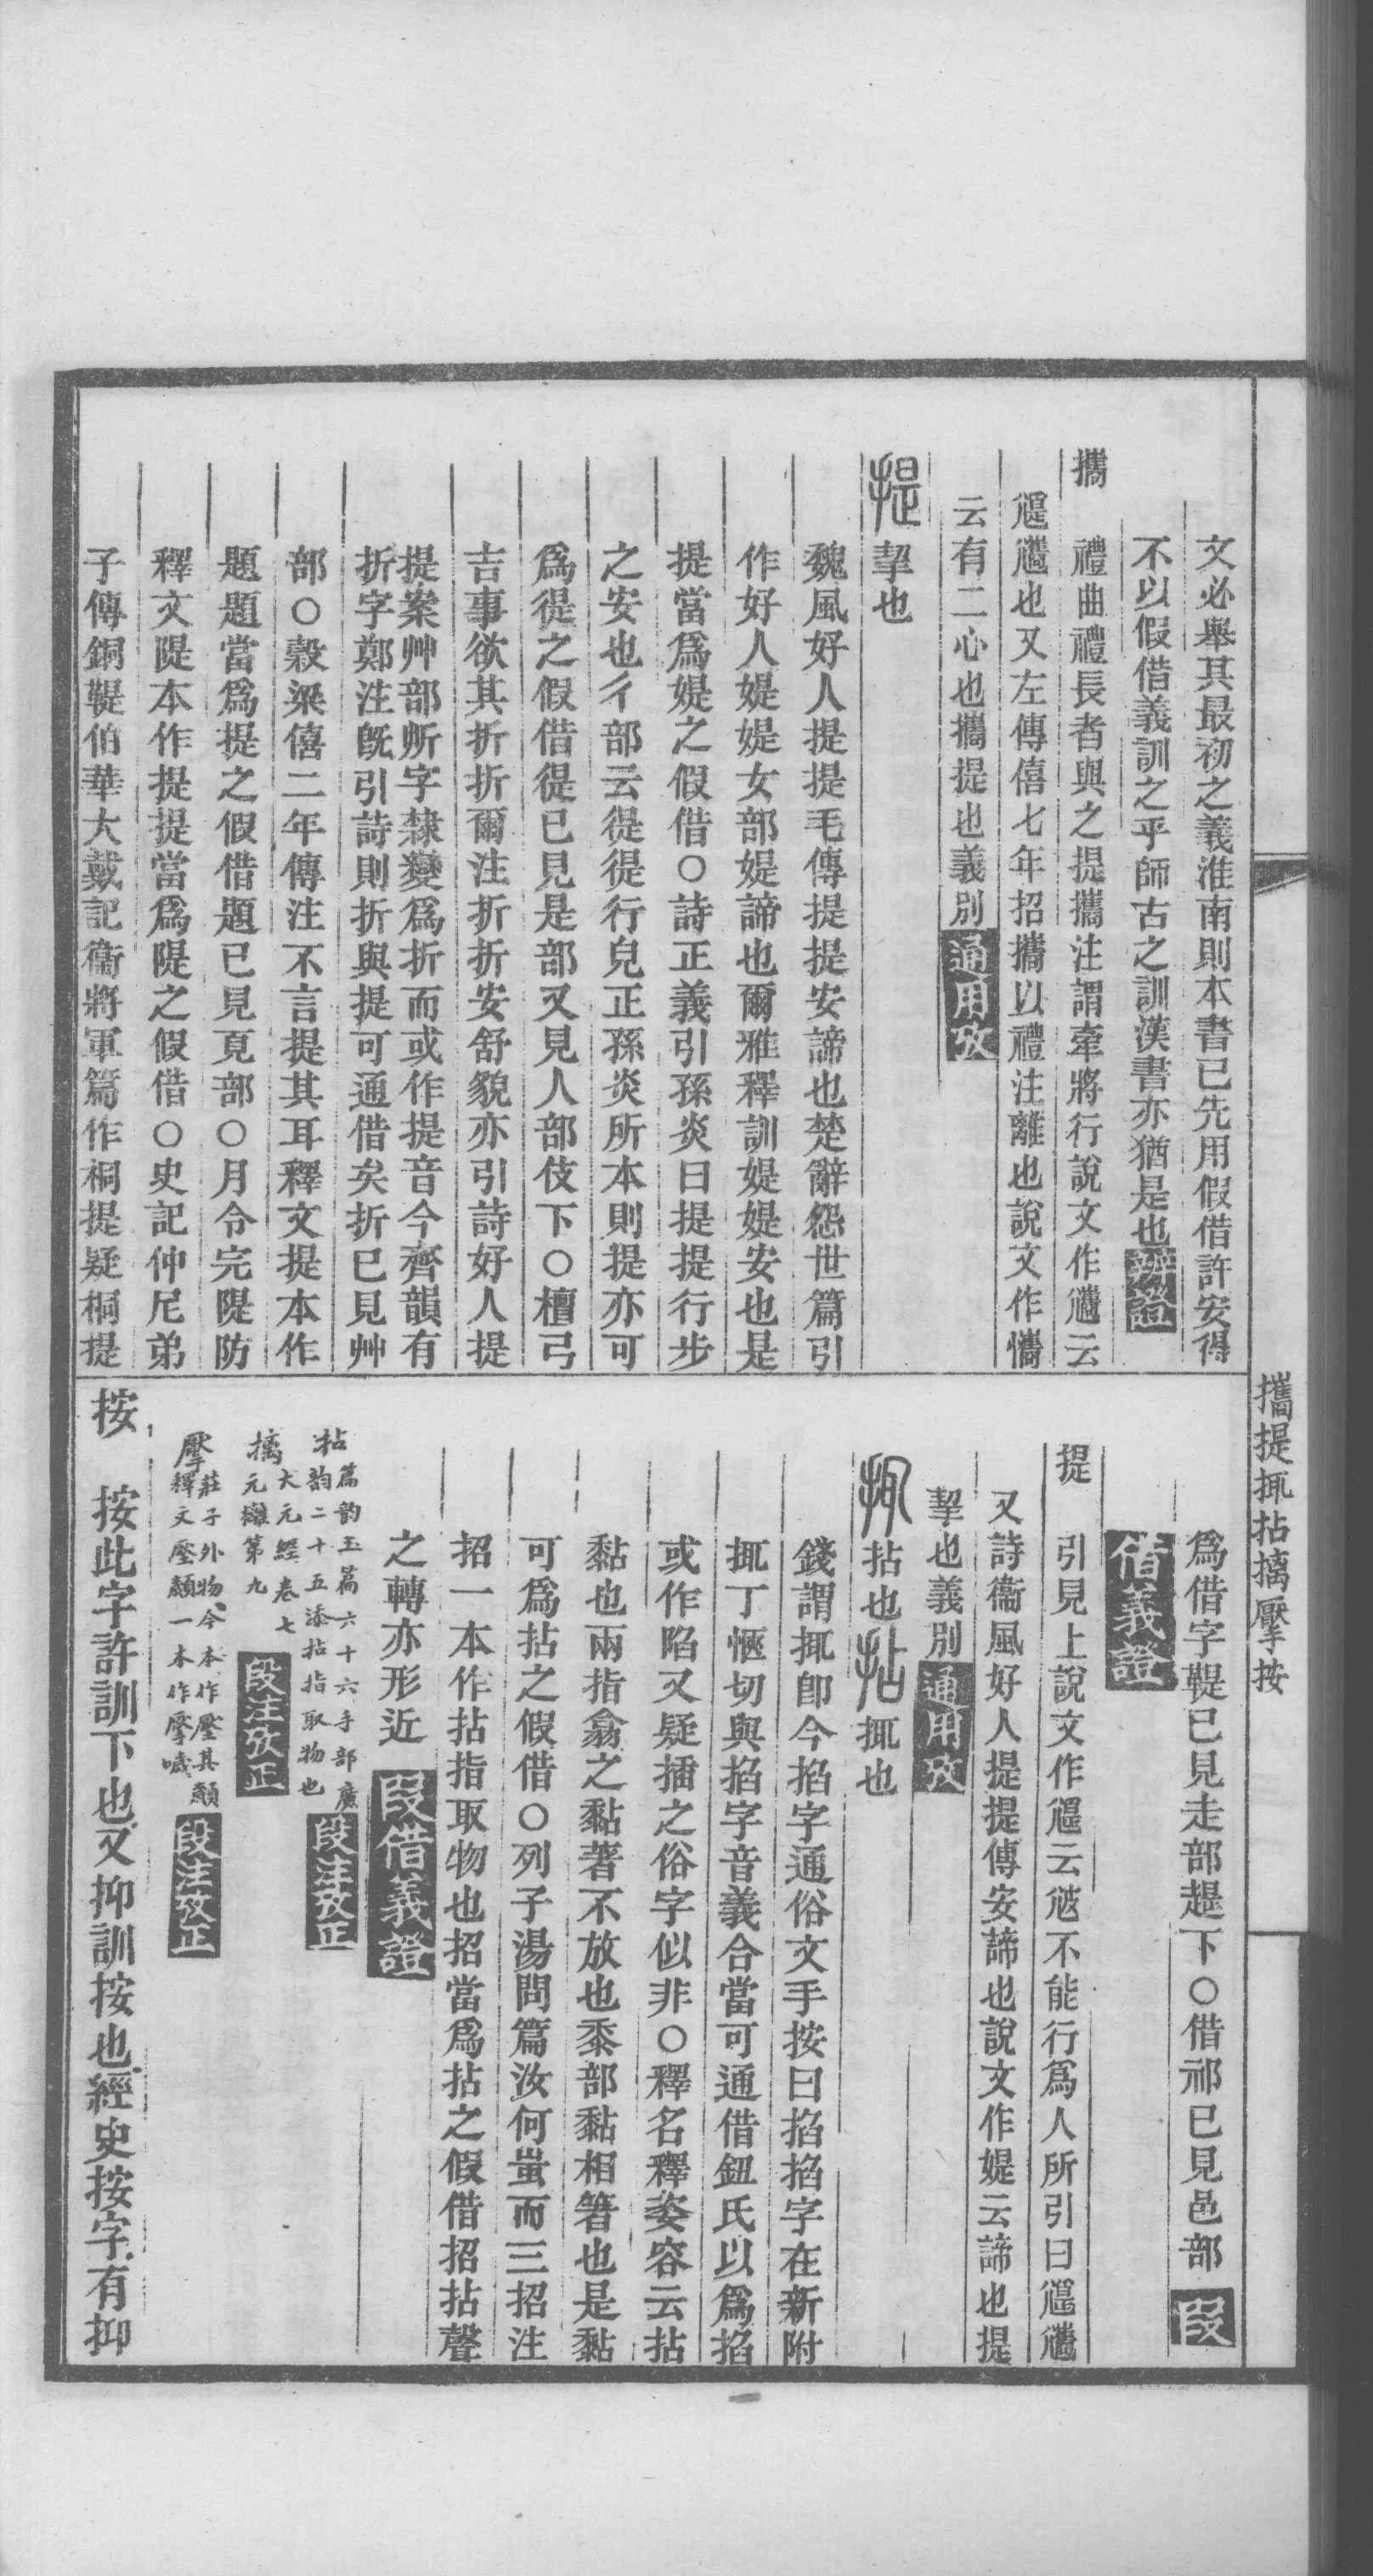 攜提掫拈摛擪按
文必舉其最初之義淮南則本書已先用假借許安得
不以假借義訓之乎師古之訓漢書亦猶是也辨證
攜　禮曲禮長者與之提攜注謂牽將行說文作㒞云
㔶㒞也又左傳僖七年招攜以禮注離也說文作㦦
云有二心也攜提也義別通用攷
提挈也
魏風好人提提毛傳提提安諦也楚辭怨世篇引
作好人媞媞女部媞諦也爾雅釋訓媞媞安也是
提當爲媞之假借○詩正義引孫炎曰提提行步
之安也彳部云徥徥行皃正孫炎所本則提亦可
爲徥之假借徥已見是部又見人部伎下○檀弓
吉事欲其折折爾注折折安舒貌亦引詩好人提
提案艸部斯字隸變爲折而或作提音今齊韻有
折字鄭注既引詩則折與提可通借矣折已見艸
部○穀梁僖二年傳注不言提其耳釋文提本作
題題當爲提之假借題已見頁部○月令完隄防
釋文隄本作提提當爲隄之假借○史記仲尼弟
子傳銅鞮伯華大戴記衞將軍篇作桐提疑桐提
爲借字鞮已見走部趧下○借祁已見邑部叚
借義證
提　引見上說文作㔶云㝿不能行爲人所引曰㔶㒞
又詩衞風好人提提傳安諦也說文作媞云諦也提
挈也義別通用攷
掫拈也拈掫也
錢謂掫卽今掐字通俗文手按曰掐掐字在新附
掫丁愜切與掐字音義合當可通借鈕氏以爲掐
或作陷又疑插之俗字似非○釋名釋姿容云拈
黏也兩指翕之黏著不放也黍部黏相箸也是黏
可爲拈之假借○列子湯問篇汝何蚩而三招注
招一本作拈指取物也招當爲拈之假借招拈聲
之轉亦形近叚借義證
拈　篇韵玉篇六十六手部廣
韵二十五添拈指取物也段注攷正
摛　大元經卷七
元攡第九段注攷正
擪　莊子外物今本作壓其顪
釋文壓顪一本作擪噦段注攷正
按　按此字許訓下也又抑訓按也經史按字有抑